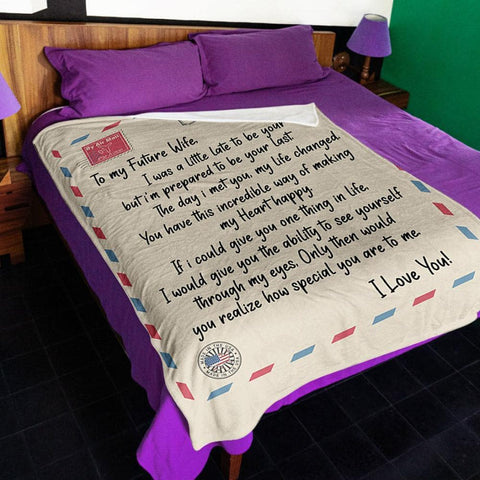 By Air Mail
To my Future Wife,
I was a little late to be your
but i'm prepared to be your last.
The day i met you, my life changed.
You have this incredible way of making
my Heart happy.
If i could give you one thing in life,
I would give you the ability to see yourself
through my eyes, Only then would
you realize how special you are to me.
I Love You!
MADE IN THE USA